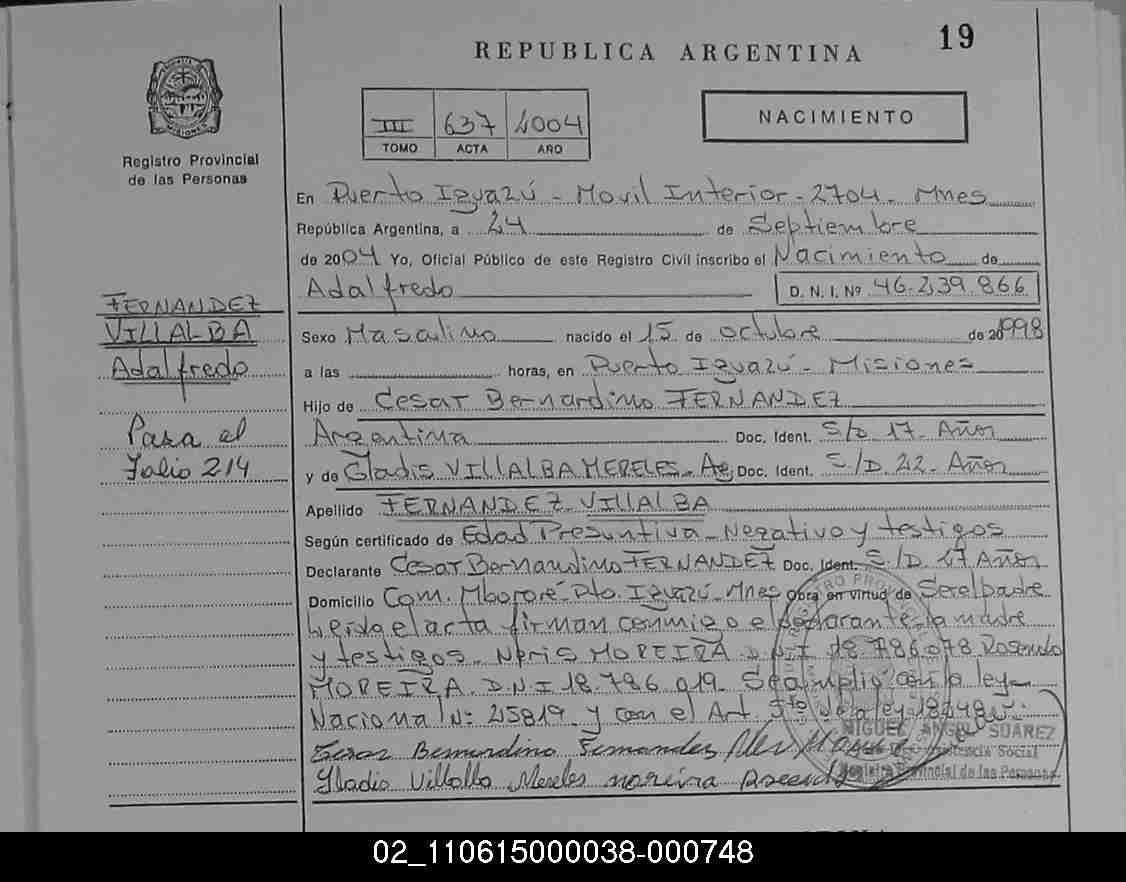 19
REPUBLICA ARGENTINA
III 637 2004
TOMO ACTA AÑO
NACIMIENTO
Registro Provincial
de las Personas
En Puerto Iguazú - Movil Interior - 2704 - Mnes
República Argentina, a 24 de Septiembre
de 2004 Yo, Oficial Público de este Registro Civil inscribo el Nacimiento de
Adalfredo D.N.I. Nº 46.239.866
FERNANDEZ
VILLALBA
Adalfredo
Sexo Masculino nacido el 15 de octubre de 20 1998
a las horas, en Puerto Iguazú - Misiones
Hijo de Cesar Bernardino FERNANDEZ
Pasa al
Folio 214
Argentina Doc. Ident. S/D 17 Años
y de Gladis VILLALBA MERELES - Ag Doc. Ident. S/D. 22 - Años
Apellido FERNANDEZ VILLALBA
Según certificado de Edad Presuntiva - Negativo y testigos
Declarante Cesar Bernardino FERNANDEZ Doc. Ident. S/D. 17 Años
Domicilio Com. Mbororé - Pto. Iguazú - Mnes Obra en virtud de Ser el padre
Leida el acta firman conmigo el declarante, la madre
y testigos - MOREIRA D.N.I 18.786.078 Rosendo
MOREIRA. D.N.I 18.786.019. Se cumplió con la ley
Nacional Nº 25819 y con el Art. 5to de la ley 18248
MIGUEL ANGEL SUAREZ
Cesar Bernardino Fernandez
Registro Provincial de las Personas
Gladis Villalba Mereles moreira Rosendo
02_110615000038-000748